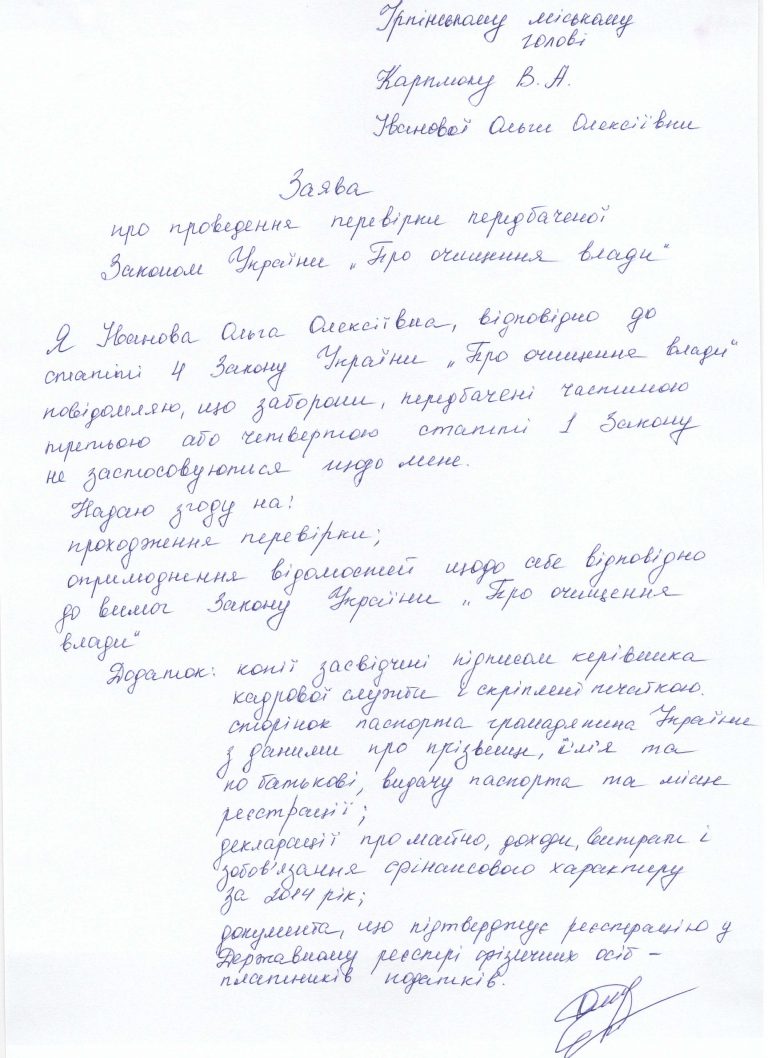 Ірпінському міському
голові
Карплюку В. А.
Іванової Ольги Олексіївни
Заява
про проведення перевірки передбаченої
Законом України „Про очищення влади"
Я Іванова Ольга Олексіївна, відповідно до
статті 4 Закону України „Про очищення влади"
повідомляю, що заборони, передбачені частиною
третьою або четвертою статті 1 Закону
не застосовуються щодо мене.
Надаю згоду на:
проходження перевірки;
оприлюднення відомостей щодо себе відповідно
до вимог Закону України „Про очищення
влади"
Додаток: копії засвідчені підписом керівника
кадрової служби і скріплені печаткою.
сторінок паспорта громадянина України
з даними про прізвище, ім'я та
по батькові, видачу паспорта та місце
реєстрації;
декларації про майно, доходи, витрати і
зобов'язання фінансового характеру
за 2014 рік;
документа, що підтверджує реєстрацію у
Державному реєстрі фізичних осіб –
платників податків.